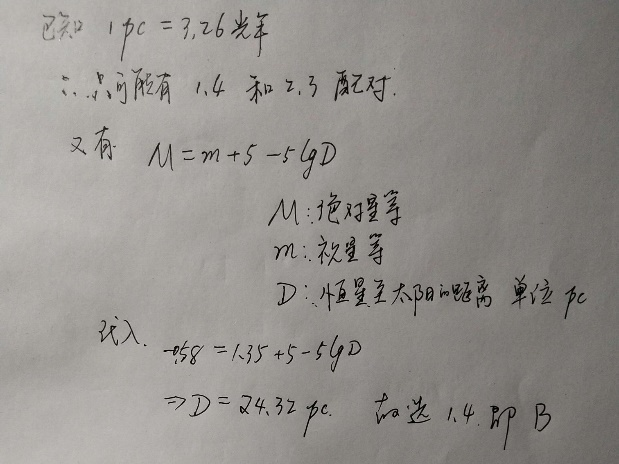 已知 1 pc = 3.26光年
∴只可能有 1.4 和 2.3 配对.
又有 M = m + 5 - 5lgD
M: 绝对星等
m: 视星等
D: 恒星至太阳的距离 单位 pc
代入. -0.58 = 1.35 + 5 - 5lgD
⇒ D = 24.32 pc. 故选 1.4. 即 B